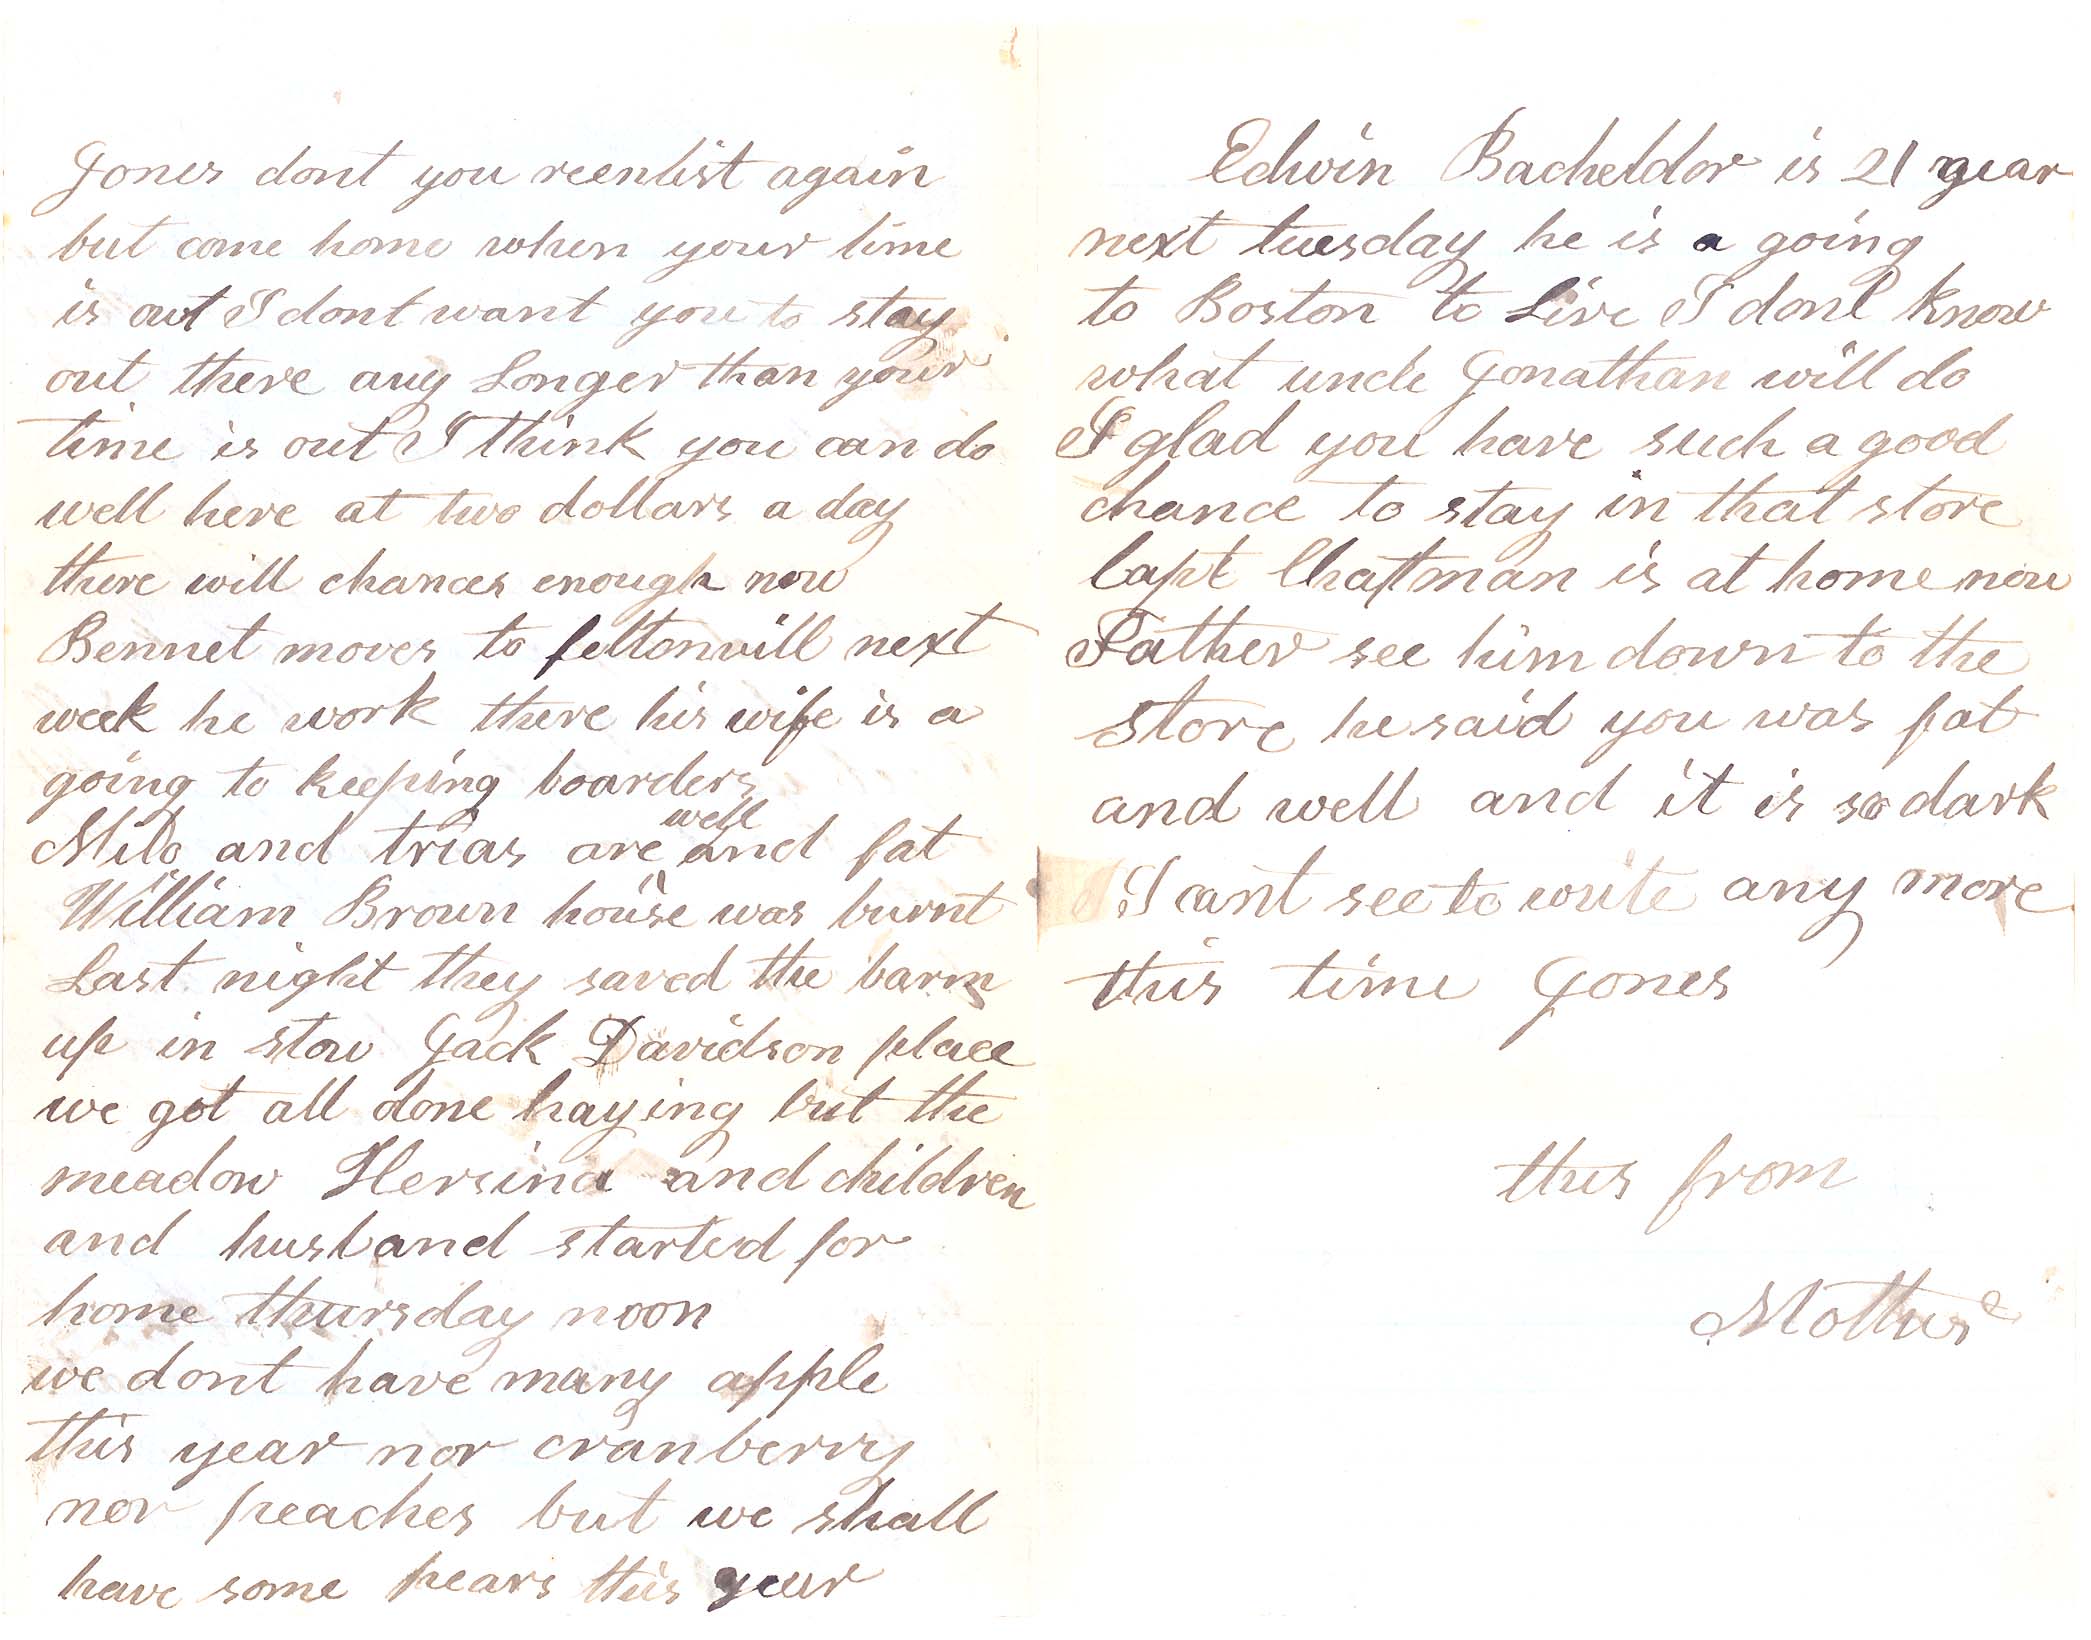 Jones dont you reenlist again
but come home when your time
is out I dont want you to stay
out there any Longer than your
time is out I think you can do
well here at two dollars a day
there will chances enough now
Bennet moves to feltonvill next
week he work there his wife is a
going to keeping boarders
Milo and trias are well and fat
William Brown house was burnt
Last night they saved the barn
up in stow Jack Davidson place
we got all done haying but the
meadow Hersina and children
and husband started for
home thursday noon
we dont have many apple
this year nor cranberry
nor peaches but we shall
have some pears this year
Edwin Bacheldor is 21 year
next tuesday he is a going
to Boston to Live I dont know
what uncle Jonathan will do
I glad you have such a good
chance to stay in that store
Capt Chatman is at home now
Father see him down to the
store he said you was fat
and well and it is so dark
I cant see to write any more
this time Jones
this from
Mother